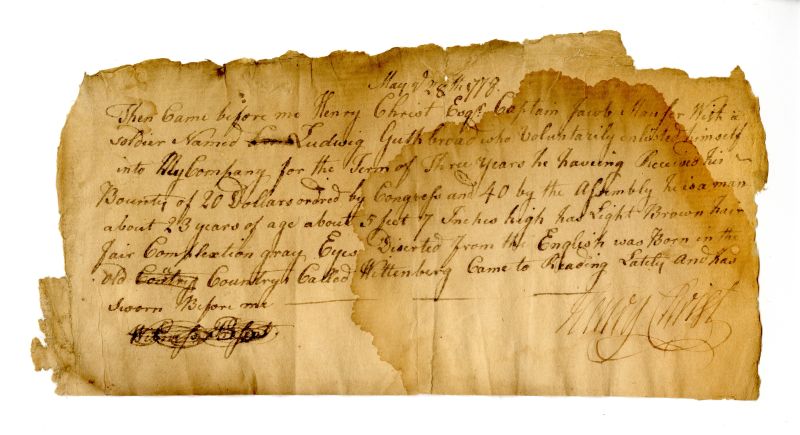 May ye 28th 1778.
Then Came before me Henry Christ Esqr. Captain Jacob With a
Soldier Named Ludwig Guthbroad who Voluntarily enlisted himself
into My Company for the Term of Three Years he haveing Received his
Bounty of 20 Dollars ordred by Congress and 40 by the Assembly he is a man
about 23 years of age about 5 feet 7 Inches high has Light Brown hair
fair Complextion gray Eyes Diserted from the English was Born in the
old Country Country Called Wittenberg Came to Reading Lately And has
Sworn Before me
Henry Christ
Witness Present